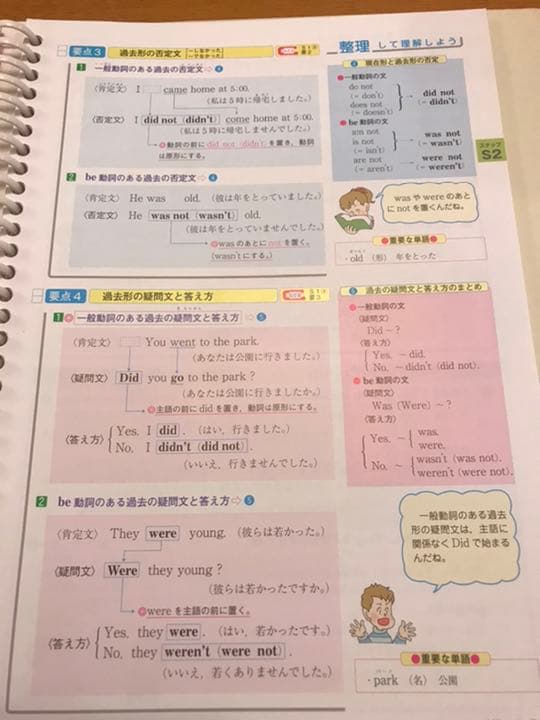 要点3 過去形の否定文 [〜しなかった
〜でなかった]
整理して理解しよう
1 一般動詞のある過去の否定文⇨④
〈肯定文〉 I came home at 5:00.
(私は5時に帰宅しました。)
〈否定文〉 I did not (didn't) come home at 5:00.
(私は5時に帰宅しませんでした。)
動詞の前に did not (didn't) を置き, 動詞
は原形にする。
2 be動詞のある過去の否定文⇨④
〈肯定文〉 He was old. (彼は年をとっていました。)
〈否定文〉 He was not (wasn't) old.
(彼は年をとっていませんでした。)
wasのあとにnotを置く。
(wasn'tにする。)
④ 現在形と過去形の否定
●一般動詞の文
do not
(= don't)
does not
(= doesn't)
→ did not
(= didn't)
●be動詞の文
am not
is not
(= isn't)
→ was not
(= wasn't)
are not
(= aren't)
→ were not
(= weren't)
ステップ
S2
wasやwereのあと
にnotを置くんだね。
●重要な単語●
・old (形) 年をとった
要点4 過去形の疑問文と答え方
1 一般動詞のある過去の疑問文と答え方⇨⑤
〈肯定文〉 You went to the park.
(あなたは公園に行きました。)
〈疑問文〉 Did you go to the park?
(あなたは公園に行きましたか。)
主語の前にdidを置き, 動詞は原形にする。
〈答え方〉 Yes, I did. (はい, 行きました。)
No, I didn't (did not).
(いいえ, 行きませんでした。)
2 be動詞のある過去の疑問文と答え方⇨⑤
〈肯定文〉 They were young. (彼らは若かった。)
〈疑問文〉 Were they young?
(彼らは若かったですか。)
wereを主語の前に置く。
〈答え方〉 Yes, they were. (はい, 若かったです。)
No, they weren't (were not).
(いいえ, 若くありませんでした。)
⑤ 過去の疑問文と答え方のまとめ
一般動詞の文
〈疑問文〉
Did 〜?
〈答え方〉
Yes, 〜 did.
No, 〜 didn't (did not).
be動詞の文
〈疑問文〉
Was [Were] 〜?
〈答え方〉
Yes, 〜 was.
were.
No, 〜 wasn't (was not).
weren't (were not).
一般動詞のある過去
形の疑問文は, 主語に
関係なくDidで始まる
んだね。
●重要な単語●
・park (名) 公園